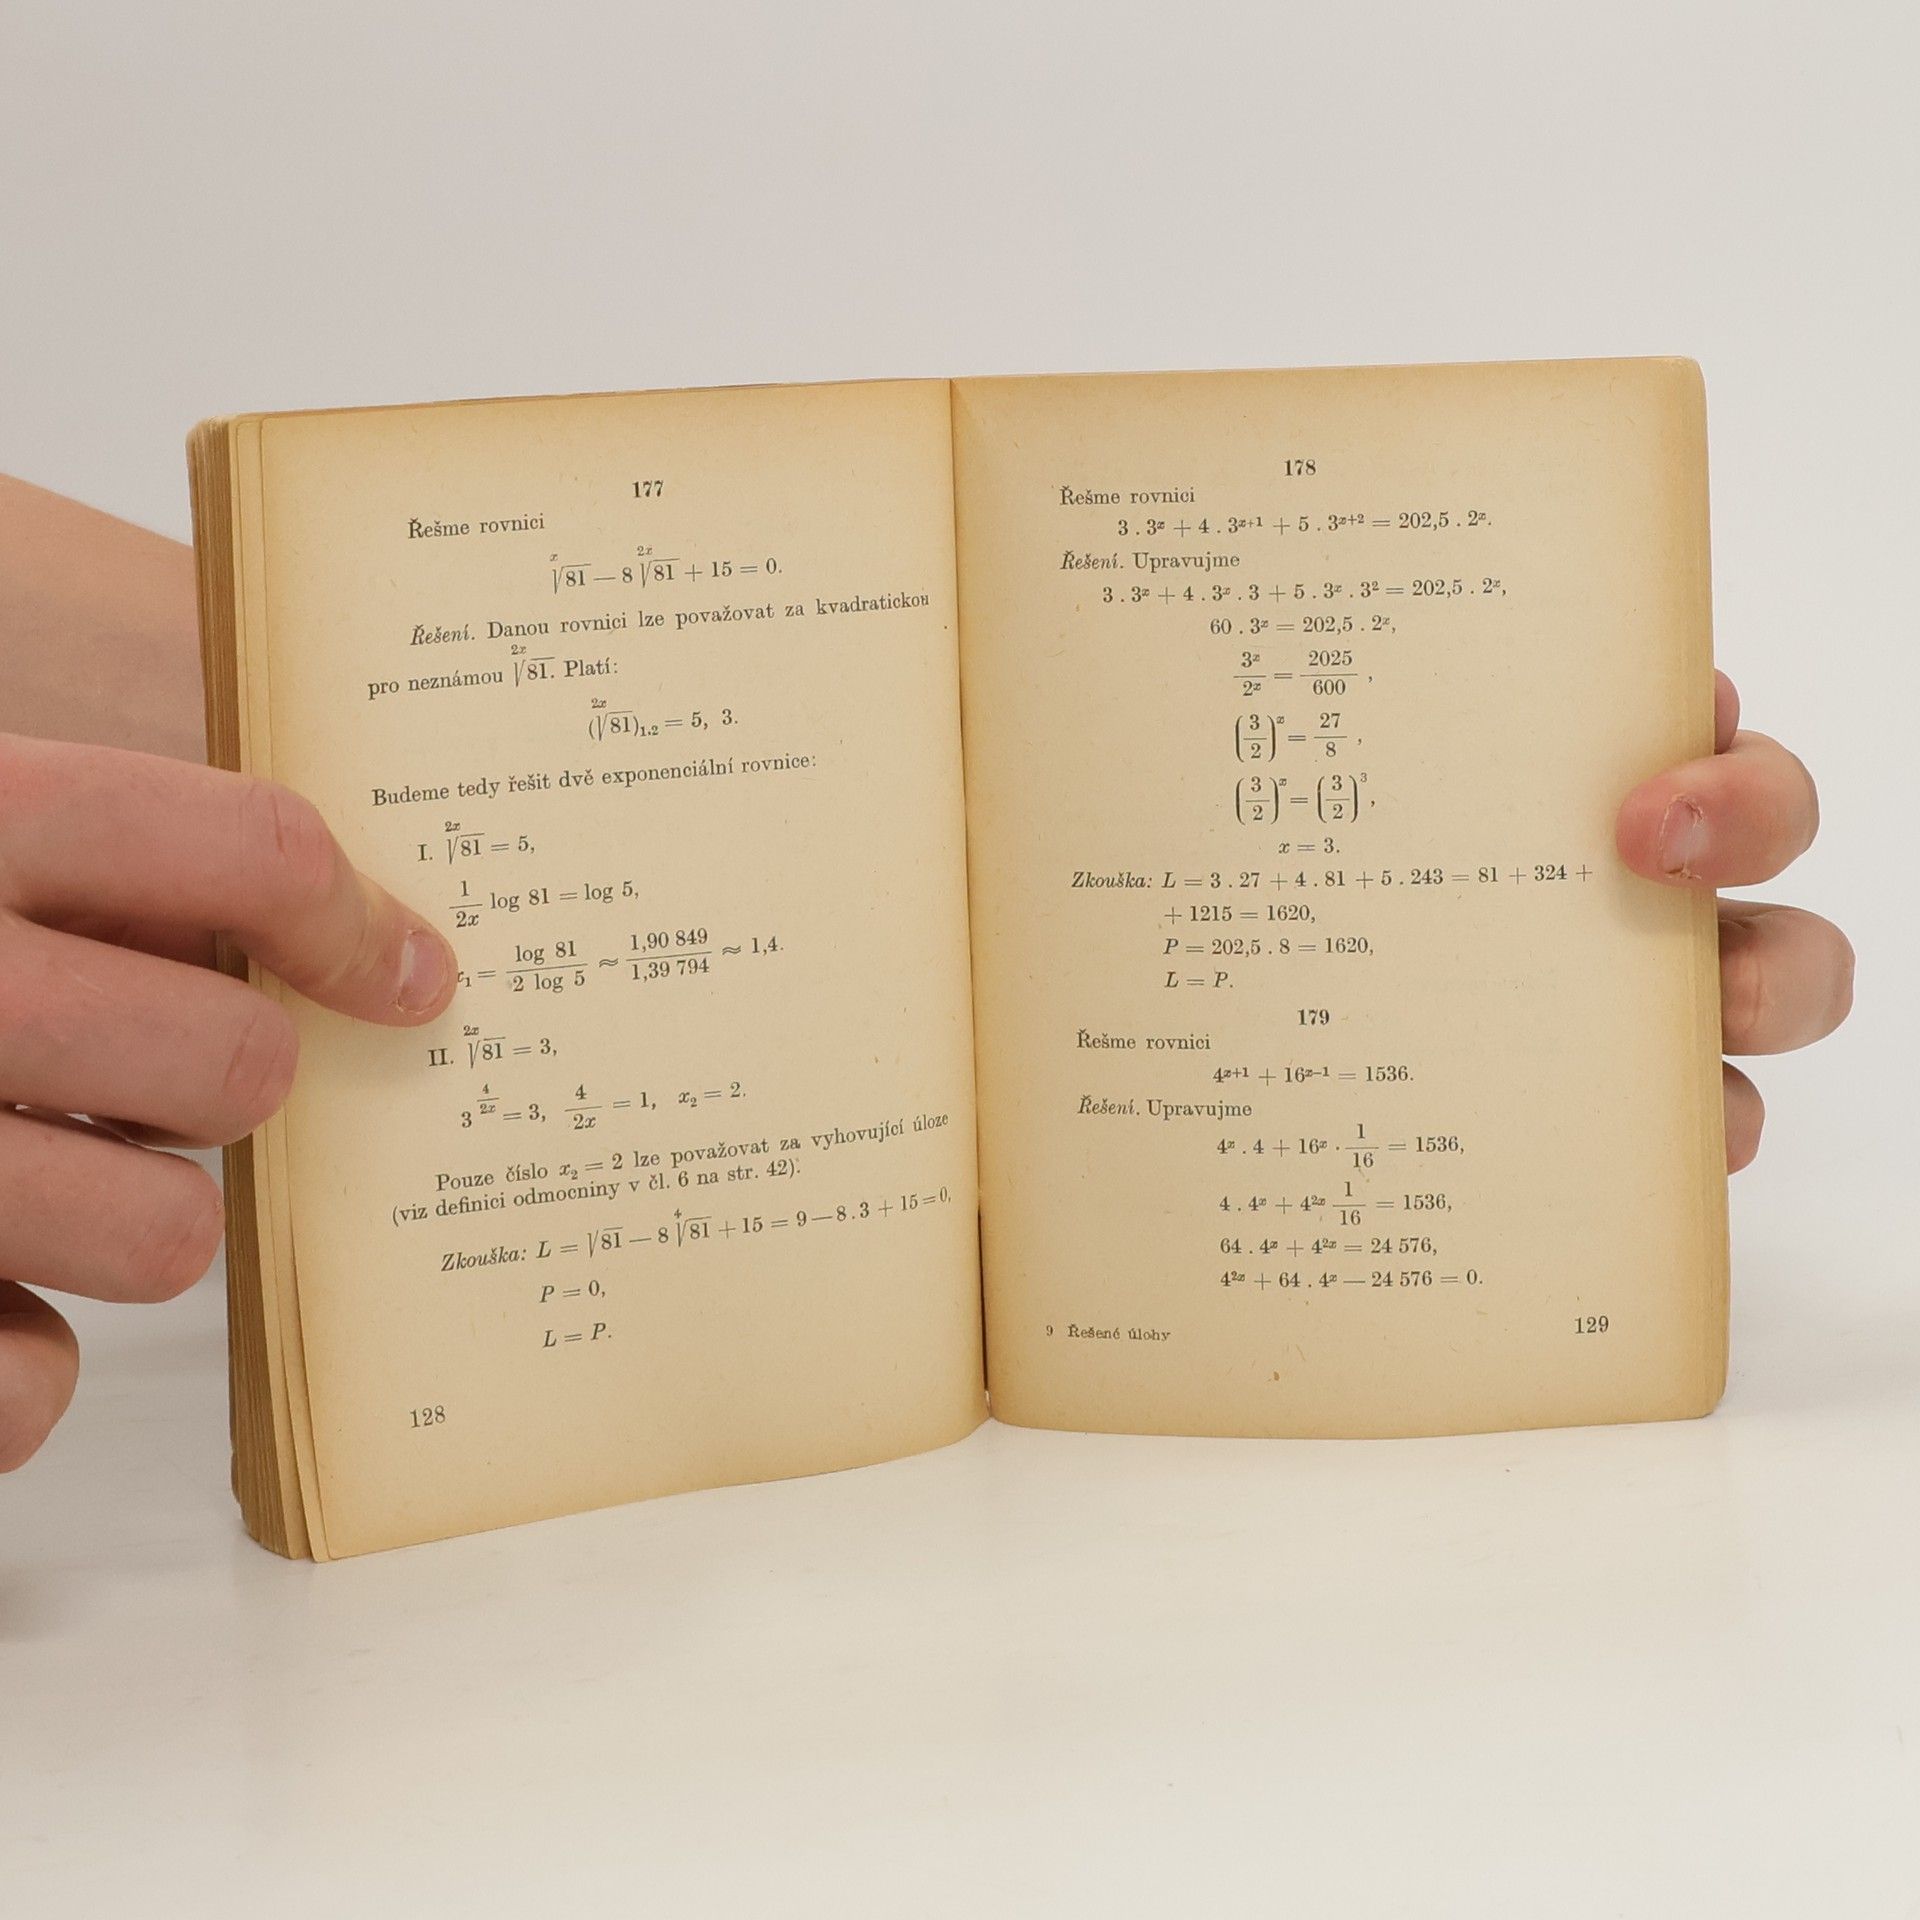 177
Řešme rovnici
\sqrt[x]{81} — 8 \sqrt[2x]{81} + 15 = 0.
Řešení. Danou rovnici lze považovat za kvadratickou
pro neznámou \sqrt[2x]{81}. Platí:
(\sqrt[2x]{81})₁.₂ = 5, 3.
Budeme tedy řešit dvě exponenciální rovnice:
I. \sqrt[2x]{81} = 5,
\frac{1}{2x} log 81 = log 5,
x₁ = \frac{log 81}{2 log 5} ≈ \frac{1,90 849}{1,39 794} ≈ 1,4.
II. \sqrt[2x]{81} = 3,
3^{\frac{4}{2x}} = 3, \frac{4}{2x} = 1, x₂ = 2.
Pouze číslo x₂ = 2 lze považovat za vyhovující úloze
(viz definici odmocniny v čl. 6 na str. 42).
Zkouška: L = \sqrt{81} — 8 \sqrt[4]{81} + 15 = 9 — 8 . 3 + 15 = 0,
P = 0,
L = P.
128
178
Řešme rovnici
3 . 3^{x} + 4 . 3^{x+1} + 5 . 3^{x+2} = 202,5 . 2^{x}.
Řešení. Upravujme
3 . 3^{x} + 4 . 3^{x} . 3 + 5 . 3^{x} . 3^{2} = 202,5 . 2^{x},
60 . 3^{x} = 202,5 . 2^{x},
\frac{3^{x}}{2^{x}} = \frac{2025}{600} ,
(\frac{3}{2})^{x} = \frac{27}{8} ,
(\frac{3}{2})^{x} = (\frac{3}{2})^{3},
x = 3.
Zkouška: L = 3 . 27 + 4 . 81 + 5 . 243 = 81 + 324 +
+ 1215 = 1620,
P = 202,5 . 8 = 1620,
L = P.
179
Řešme rovnici
4^{x+1} + 16^{x—1} = 1536.
Řešení. Upravujme
4^{x} . 4 + 16^{x} . \frac{1}{16} = 1536,
4 . 4^{x} + 4^{2x} \frac{1}{16} = 1536,
64 . 4^{x} + 4^{2x} = 24 576,
4^{2x} + 64 . 4^{x} — 24 576 = 0.
9 Řešené úlohy
129